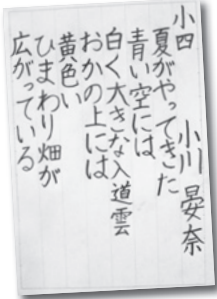 小四 小川晏奈
夏がやってきた
青い空には
白く大きな入道雲
おかの上には
黄色い
ひまわり畑が
広がっている